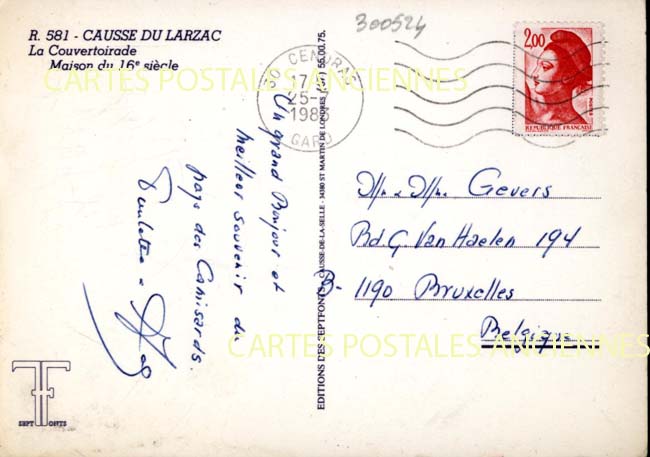 R. 581 - CAUSSE DU LARZAC
La Couvertoirade
Maison du 16e siècle
300524
2,00
POSTES
REPUBLIQUE FRANÇAISE
30 GENERAC
17-
25-
198
GARD
CARTES POSTALES ANCIENNES
Un grand Bonjour et
meilleur souvenir du
pays des Camisards.
EDITIONS DES SEPTFONTS - CAUSSE-DE-LA-SELLE - 34380 ST MARTIN DE LONDRES
55.00.75.
Mr & Mme Gevers
Bd G. Van Haelen 194
B. 1190 Bruxelles
Belgique
CARTES POSTALES ANCIENNES
SEPT FONTS